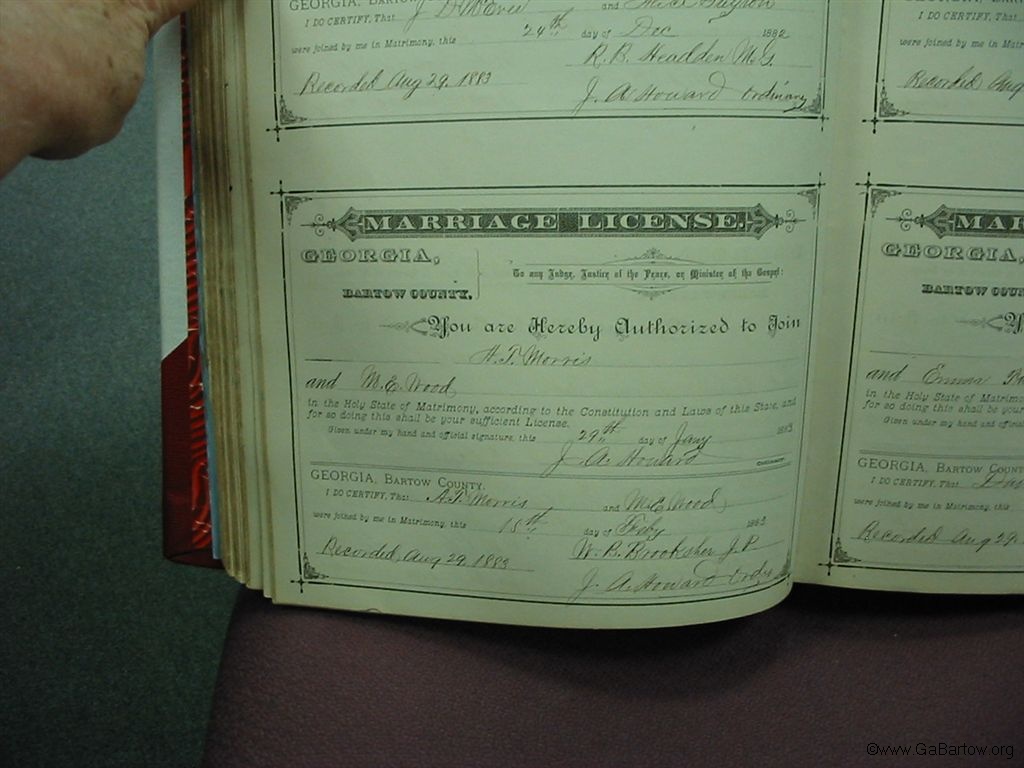 GEORGIA, BARTOW
I DO CERTIFY, That J. and
were joined by me in Matrimony, this 24th day of Dec 1882
R. B. Headden M.G.
Recorded Aug 29, 1883
J. A. Howard Ordinary
MARRIAGE LICENSE.
GEORGIA,
BARTOW COUNTY.
To any Judge, Justice of the Peace, or Minister of the Gospel:
You are Hereby Authorized to Join
A. T. Morris
and M. E. Wood
in the Holy State of Matrimony, according to the Constitution and Laws of this State, and
for so doing this shall be your sufficient License.
Given under my hand and official signature, this 29th day of Jany 1883
J. A. Howard ORDINARY.
GEORGIA, BARTOW COUNTY.
I DO CERTIFY, That A. T. Morris and M. E. Wood
were joined by me in Matrimony, this 15th day of Feby 1883
W. B. Brooksher J. P.
Recorded, Aug 29, 1883
J. A. Howard Ordy
I DO CERTIFY, That
were joined by me in Matr
Recorded Aug
MAR
GEORGIA,
BARTOW COUN
Y
and Emma
in the Holy State of Matrimo
for so doing this shall be your
Given under my hand and official
GEORGIA, BARTOW COUNT
I DO CERTIFY, That
were joined by me in Matrimony, th
Recorded Aug 29
©www.GaBartow.org